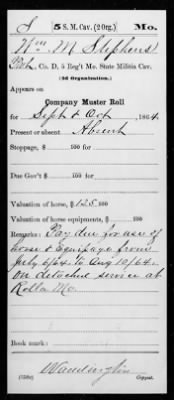 S 5 S. M. Cav. (2 Org.) Mo.
Wm. M Stephens
Co. D, 5 Reg't Mo. State Militia Cav.
(2d Organization.)
Appears on
Company Muster Roll
for Sept & Oct, 1864.
Present or absent Absent
Stoppage, $ 100 for
Due Gov't $ 100 for
Valuation of horse, $ 125 100
Valuation of horse equipments, $ 100
Remarks: Pay due for use of
horse & Equipage from
July 6/64 to Aug 10/64.
on detached service at
Rolla Mo.
Book mark:
(358c) Copyist.